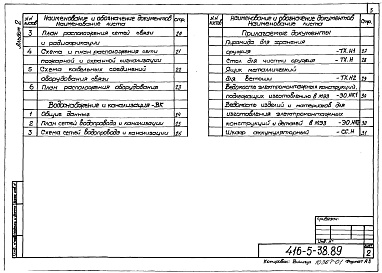 5
Альбом 2
NN листов
Наименование и обозначение документов
Наименование листа
Стр.
3 План расположения сетей связи 20
и радиофикации
4 Схема и план расположения сети 21
пожарной и охранной сигнализации
5 Схема кабельных соединений 22
оборудования связи
6 План расположения оборудования 23
Водоснабжение и канализация -ВК
1 Общие данные 24
2 План сетей водопровода и канализации 25
3 Схема сетей водопровода и канализации 26
NN листов
Наименование и обозначение документов
Наименование листа
Стр.
Прилагаемые документы
Пирамида для хранения
оружия -ТХ.Н1 27
Стол для чистки оружия -ТХ.Н 28
Ящик металлический
для ветоши -ТХ.Н2 29
Ведомость электромонтажных конструкций,
подлежащих изготовлению в МЭЗ -ЭО.НК1 30
Ведомость изделий и материалов для
изготовления электромонтажных
конструкций и деталей в МЭЗ -ЭО.НК2 30
Шкаф аккумуляторный -СС.Н 31
Привязан:
Инв. №
416-5-38.89
Лист
2
Копировал
Формат А3